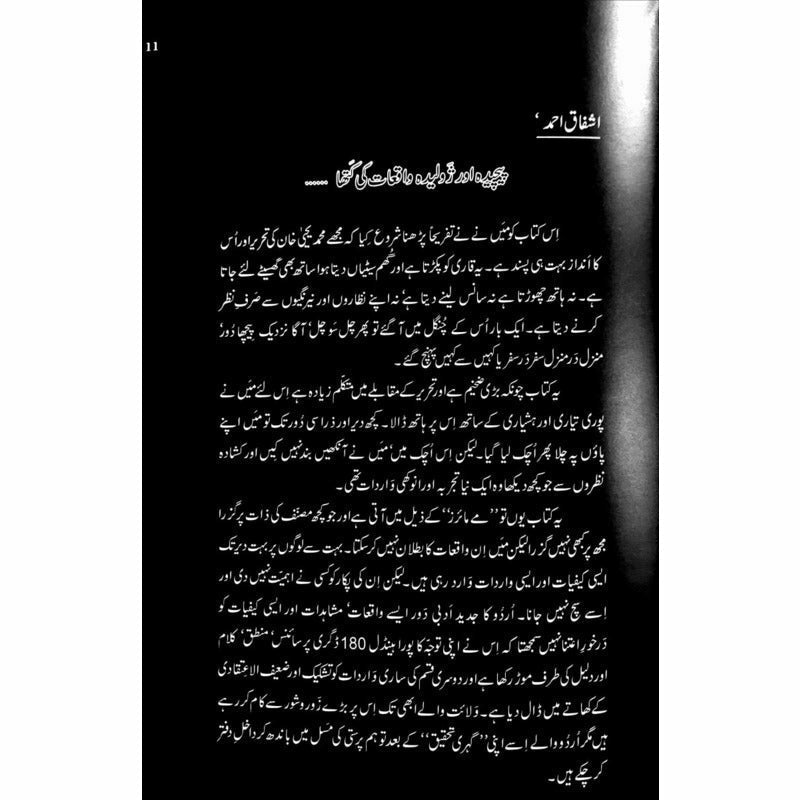 11
اشفاق احمد ‘
پیچیدہ اور ژولیدہ واقعات کی کَتھا ......
اِس کتاب کو مَیں نے نے تفریحاً پڑھنا شروع کِیا کہ مجھے محمد یحییٰ خان کی تحریر اور اُس
کا اَنداز بہت ہی پسند ہے۔ یہ قاری کو پکڑتا ہے اور گُھم سیٹیاں دیتا ہوا ساتھ بھی گھسیٹے لئے جاتا
ہے۔ نہ ہاتھ چھوڑتا ہے نہ سانس لینے دیتا ہے‘ نہ اپنے نظاروں اور نیرنگیوں سے صَرفِ نظر
کرنے دیتا ہے۔ ایک بار اُس کے چُنگل میں آ گئے تو پھر چل سَو چل‘ آگا نزدیک پیچھا دُور‘
منزل دَر منزل سفر دَر سفر یا کہیں سے کہیں پہنچ گئے۔
یہ کتاب چونکہ بڑی ضخیم ہے اور تحریر کے مقابلے میں متکلّم زیادہ ہے اِس لئے مَیں نے
پوری تیاری اور ہشیاری کے ساتھ اِس پر ہاتھ ڈالا۔ کچھ دیر اور ذرا سی دُور تک تو مَیں اپنے
پاؤں پہ چلا پھر اُچک لیا گیا۔ لیکن اِس اُچک میں‘ مَیں نے آنکھیں بند نہیں کیں اور کشادہ
نظروں سے جو کچھ دیکھا وہ ایک نیا تجربہ اور انوکھی وَاردات تھی۔
یہ کتاب یوں تو ’’مے مائرز‘‘ کے ذیل میں آتی ہے اور جو کچھ مصنّف کی ذات پر گزرا
مجھ پر کبھی نہیں گزرا لیکن مَیں اِن واقعات کا بطلان نہیں کر سکتا۔ بہت سے لوگوں پر بہت دیر تک
ایسی کیفیات اور ایسی واردات وَارد رہی ہیں۔ لیکن اِن کی پکار کو کسی نے اہمیّت نہیں دی اور
اِسے سچ نہیں جانا۔ اُردُو کا جدید اَدبی دَور ایسے واقعات‘ مشاہدات اور ایسی کیفیات کو
دَرخورِ اعتنا نہیں سمجھتا کہ اِس نے اپنی توجّہ کا پورا ہینڈل 180 ڈگری پر سائنس‘ منطق‘ کلام
اور دلیل کی طرف موڑ رکھا ہے اور دوسری قِسم کی ساری وَاردات کو تشکیک اور ضعیف الاعتقادی
کے کھاتے میں ڈال دیا ہے۔ وَلائت والے ابھی تک اِس پر بڑے زَور و شور سے کام کر رہے
ہیں مگر اُردُو والے اِسے اپنی ’’گہری تحقیق‘‘ کے بعد تو ہم پرستی کی مَسل میں باندھ کر داخلِ دفتر
کر چکے ہیں۔